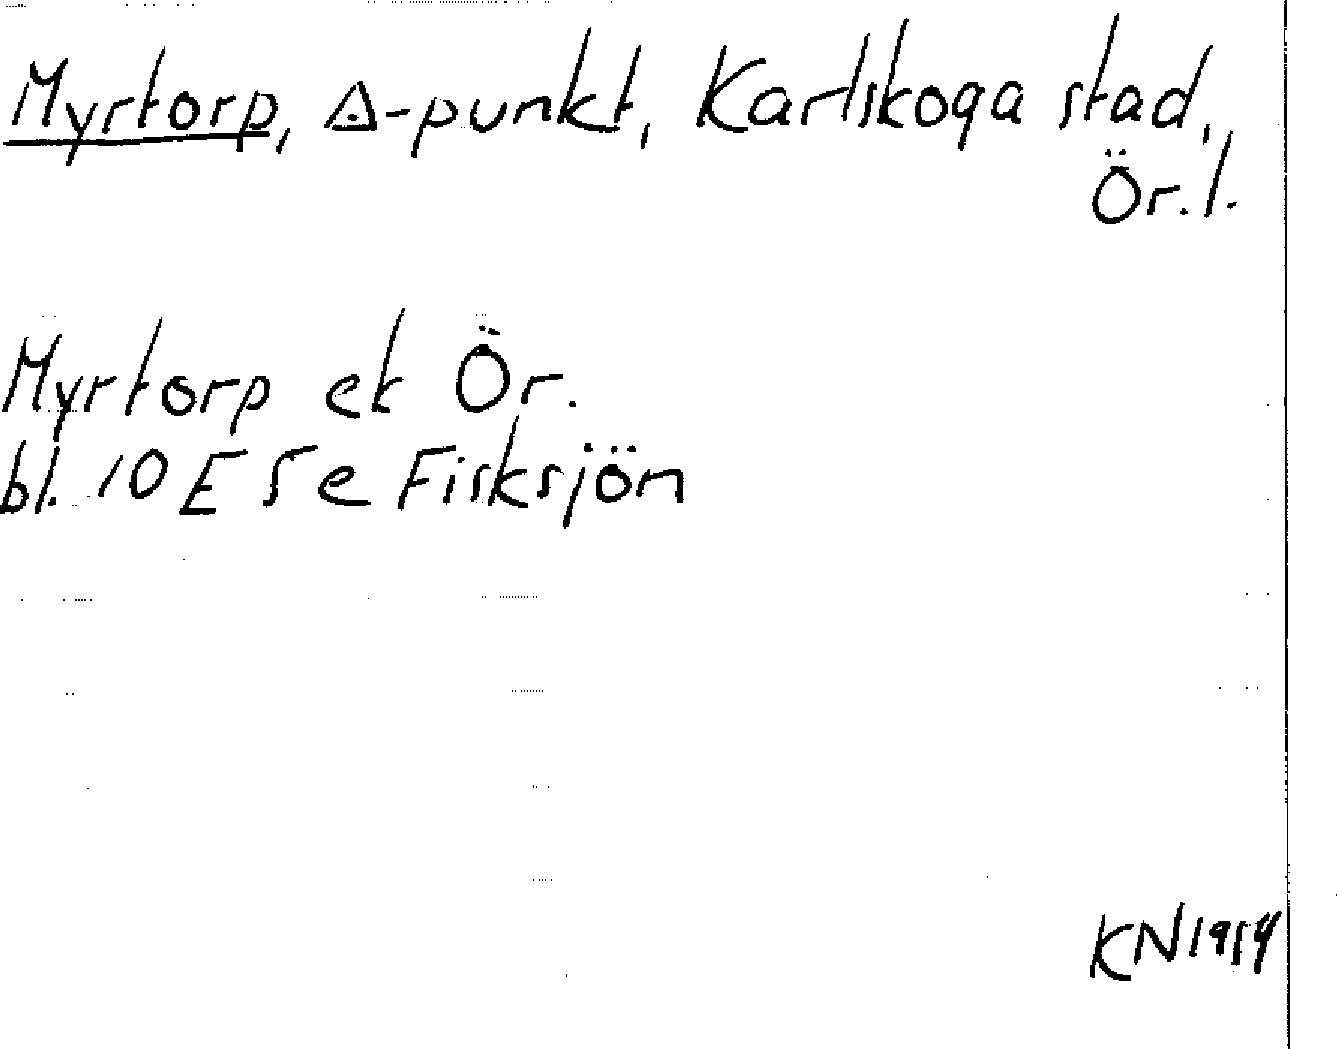 Myrtorp, △-punkt, Karlskoga stad,
Ör. l.
Myrtorp ek Ör.
bl. 10 E 5 e Fisksjön
KN 1954